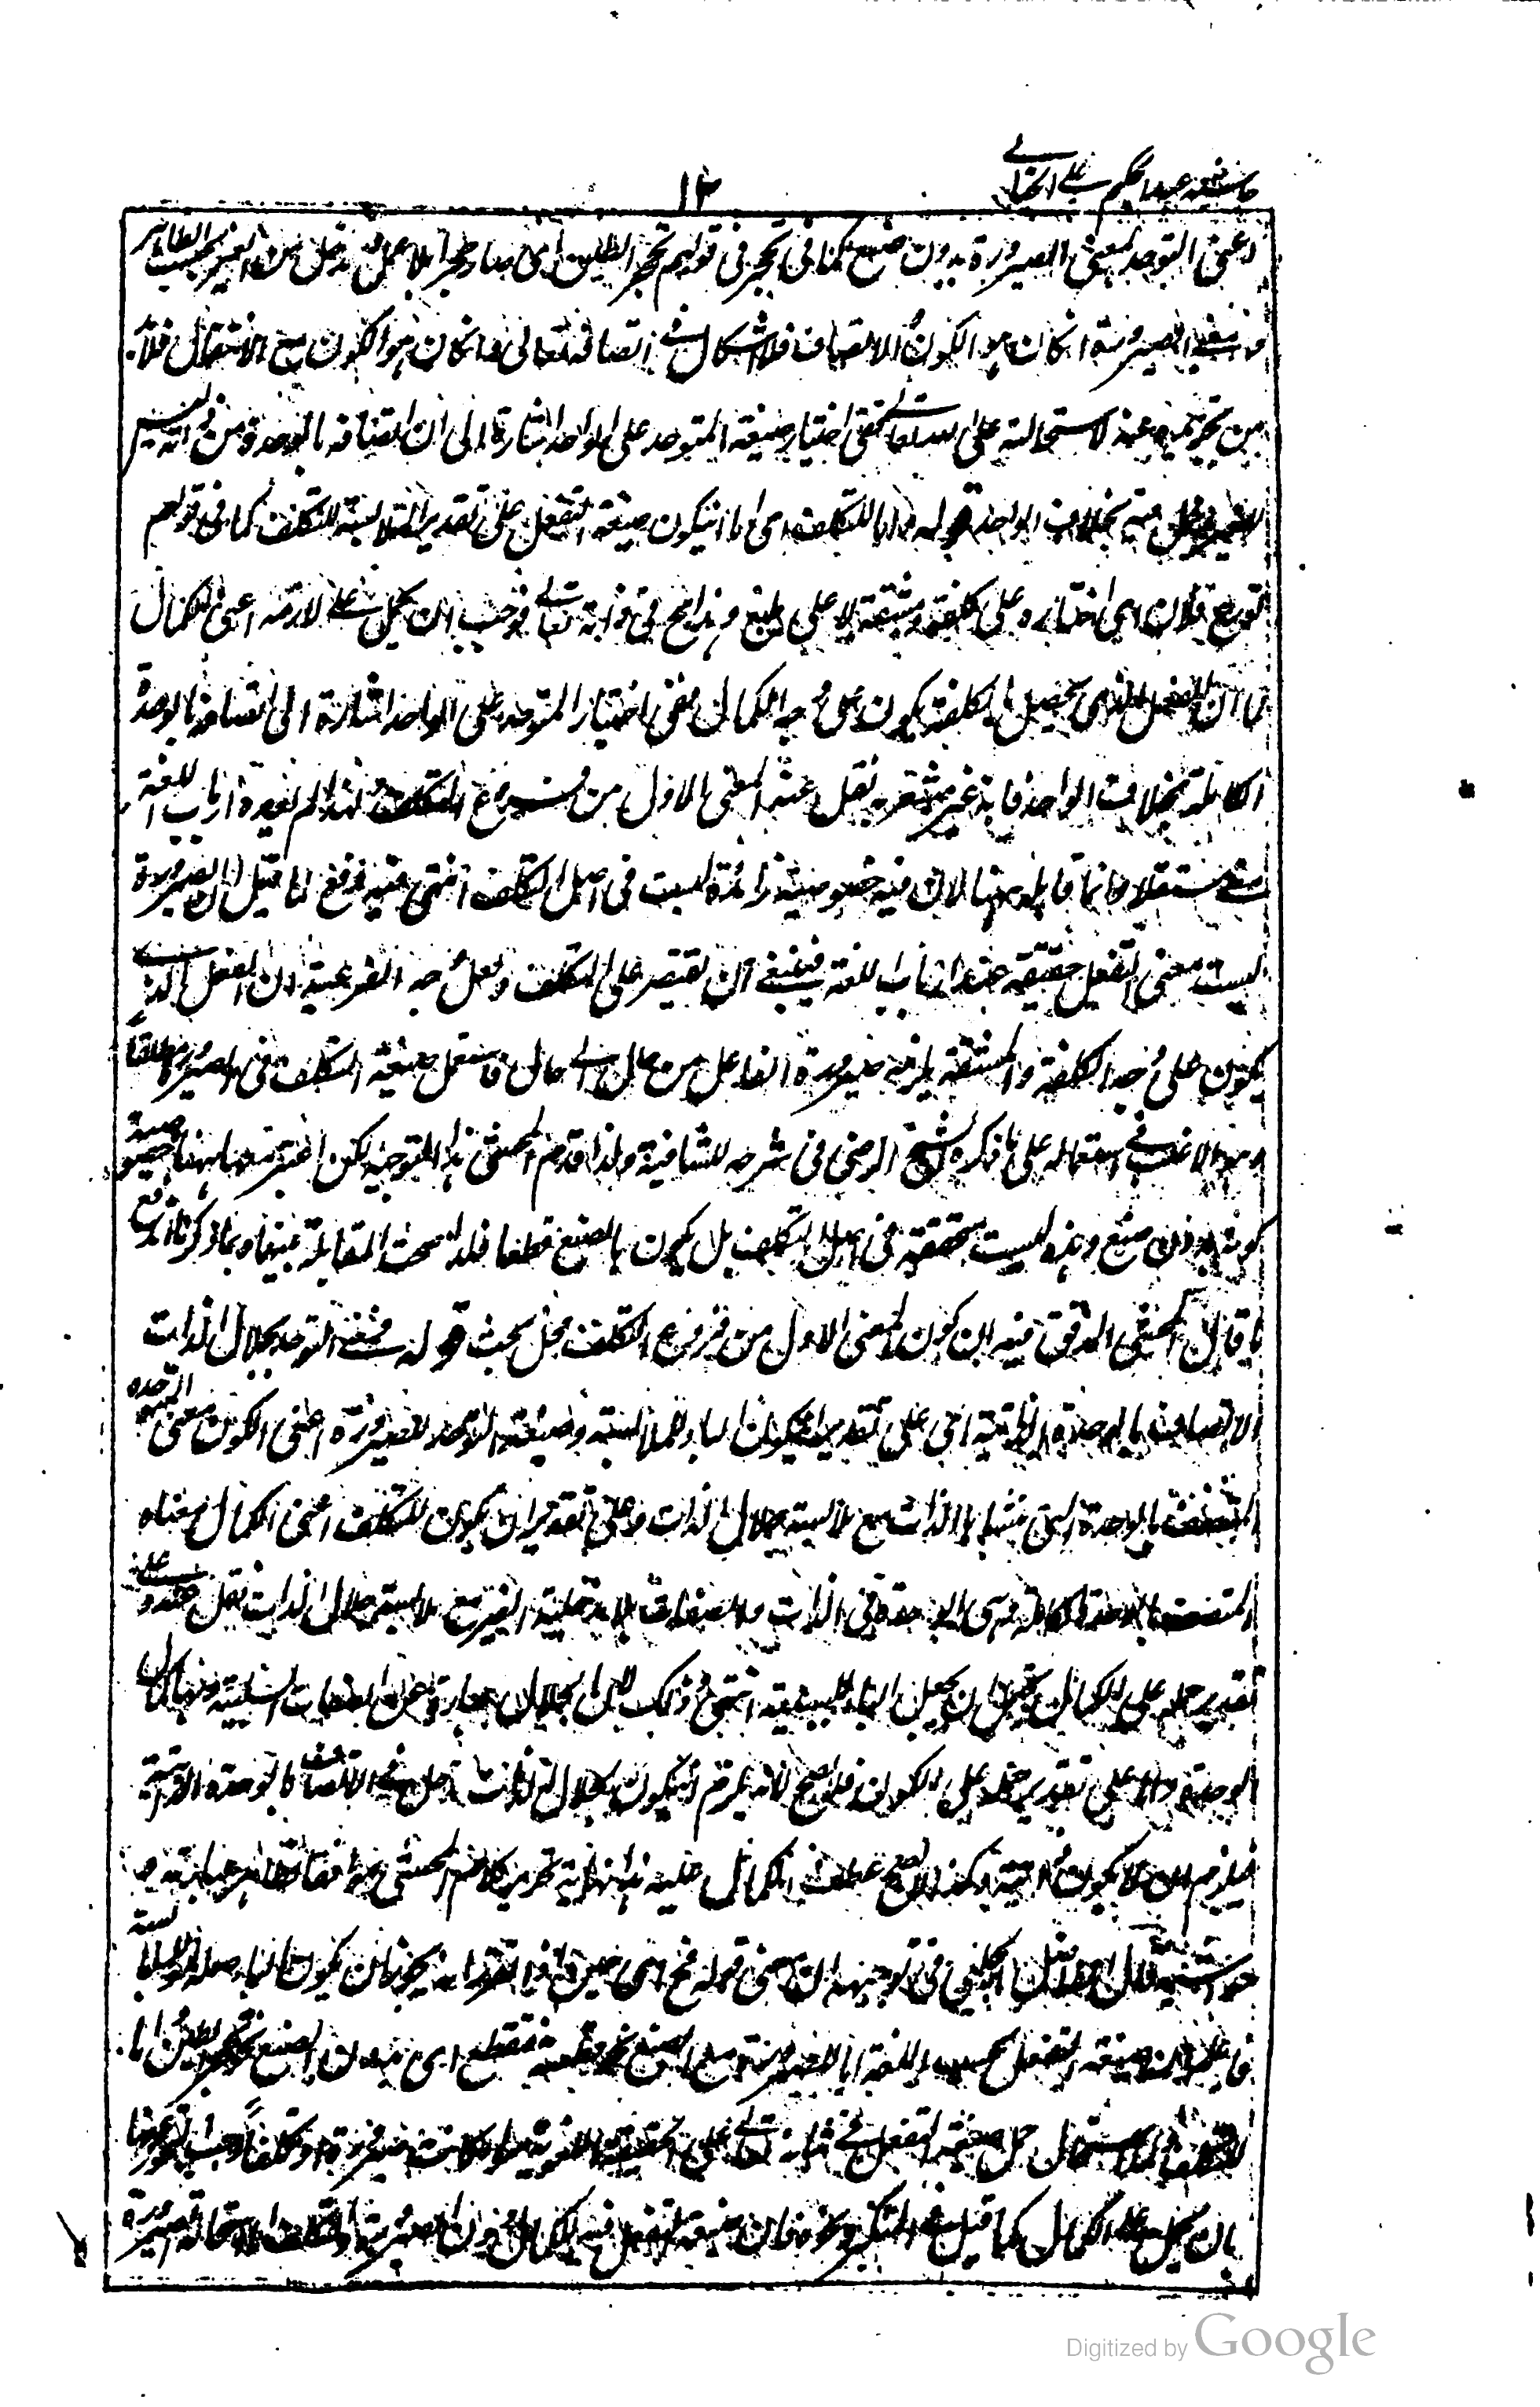 حاشية عبد الحكيم على الخيالي
١٢
اعنى التوحد بمعنى الصيرورة بدون صنع كما فى تحجر فى قولهم تحجر الطين اى صار حجرا بلا عمل تدخل من الغير بحسب الظاهر
ومعنى الصيرورة ان كان هو الكون الاتصاف فلا اشكال فى اتصافه تعالى وان كان هو الكون مع الانتقال فلا بد
من تجريده عنه لاستحالته على الله تعالى ففى اختيار صيغة المتوحد على الواحد اشارة الى ان اتصافه بالوحدة من ذاته ليس
للغير مدخل فيه بخلاف الواحد قوله واما للتكلف اى اما ان يكون صيغة التفعل على تقدير الملابسة للتكلف كما فى قولهم
تورع فلان اى اختاره على كلفة ومشقة لا على طبع وهذا مح فى ذاته تعالى فوجب ان يحمل على لازمه اعنى الكمال
لما ان الفعل الذى يحصل بالكلفة يكون على وجه الكمال ففى اختيار المتوحد على الواحد اشارة الى اتصافه بالوحدة
الكاملة بخلاف الواحد فانه غير مشعر به نقل عنه المعنى الاول من فروع التكلف ولهذا لم يعده ارباب اللغة
معنى مستقلا وانما قابله ههنا لان فيه خصوصية زائدة ليست فى اصل التكلف انتهى فيه دفع لما قيل ان الصيرورة
ليست معنى التفعل حقيقة عند ارباب اللغة فينبغى ان يقتصر على التكلف ولعل وجه الفرعية ان الفعل الذى
يكون على وجه الكلفة والمشقة يلزمه صيرورة الفاعل من حال الى حال فاستعمل صيغة التكلف فى الصيرورة مطلقا
وهو الاغلب فى استعماله على ما ذكره الشيخ الرضى فى شرحه للشافية ولذا قدم المحشى هذا التوجيه لكن اعتبر معها ههنا خصوصية
كونه بدون صنع وهذه ليست متحققة فى اصل التكلف بل يكون بالصنع قطعا فلذا صحت المقابلة بينهما وبما ذكرنا اندفع
ما قال المحشى المدقق فيه ان كون المعنى الاول من فروع التكلف محل بحث قوله فمعنى التوحد بجلال الذات
الاتصاف بالوحدة الذاتية اى على تقدير ان يكون الباء للملابسة وصيغة التوحد للصيرورة اعنى الكون معنى التوحد
المتصف بالوحدة التى منشاها الذات مع ملابسة جلال الذات وعلى تقدير ان يكون للتكلف اعنى الكمال معناه
المتصف بالوحدة الكاملة وهى الوحدة فى الذات والصفات بلا مدخلية الغير مع ملابسة جلال الذات نقل عنه وعلى
تقدير حمله على الكمال يحتمل ان يجعل الباء للسببية انتهى وذلك لان الجلال عبارة عن الصفات السلبية ومنها كمال
الوحدة واما على تقدير حمله على الكون فلا يصح لانه يلزم ان يكون بجلال الذات دخل فى الاتصاف بالوحدة الذاتية
فيلزم ان لا يكون ذاتية وكذا لا يصح عطف الكمال عليه هذا نهاية تحرير كلام المحشى موافقا لظاهر عبارته و
حواشيه قال الفاضل الجلبى فى توجيهه ان معنى قوله فح اى حين اذ تقرر انه يجوز ان يكون الباء صلة او للملابسة
فاعلم ان صيغة التفعل بحسب اللغة اما للصيرورة
لاستحال حمل صيغة التفعل فى شانه تعالى على الحقيقة اللغوية سواء كانت صيرورة او تكلفا وجب
ان يحمل على الكمال كما قيل فى المتكبر ونحوه فان صيغة التفعل فيه للكمال دون الصيرورة والتكلف لاستحالة الصيرورة
Digitized by Google